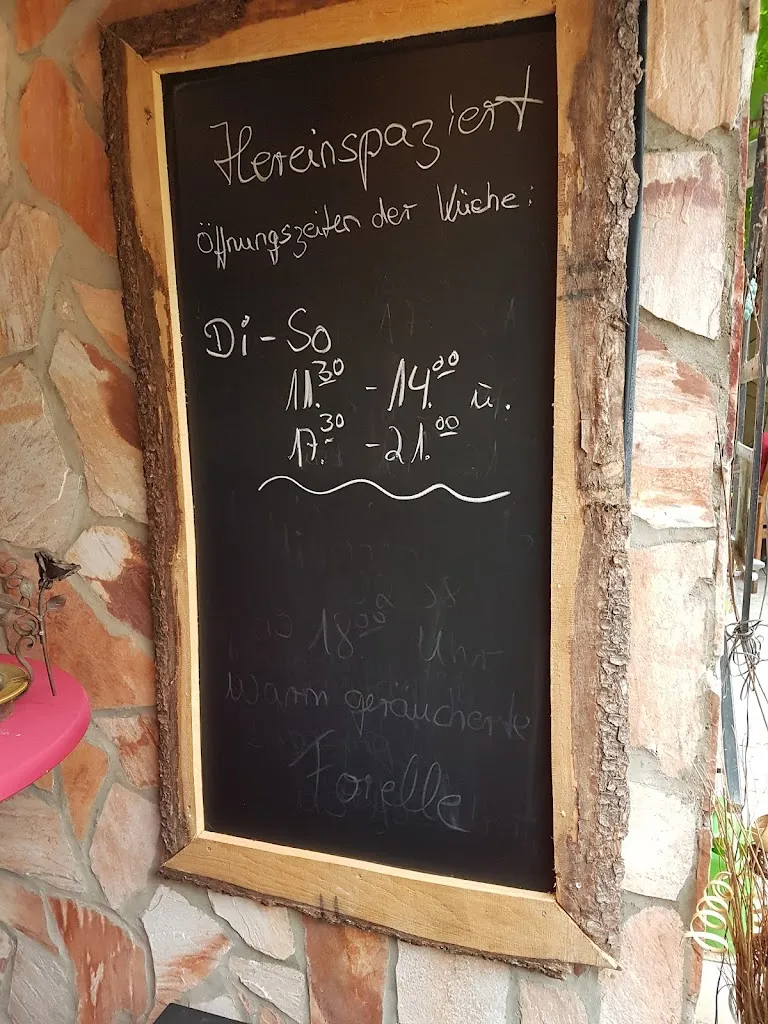 Hereinspaziert
Öffnungszeiten der Küche:
Di - So
11.30 - 14.00 u.
17.30 - 21.00
18.00 Uhr
Warm geräucherte
Forelle